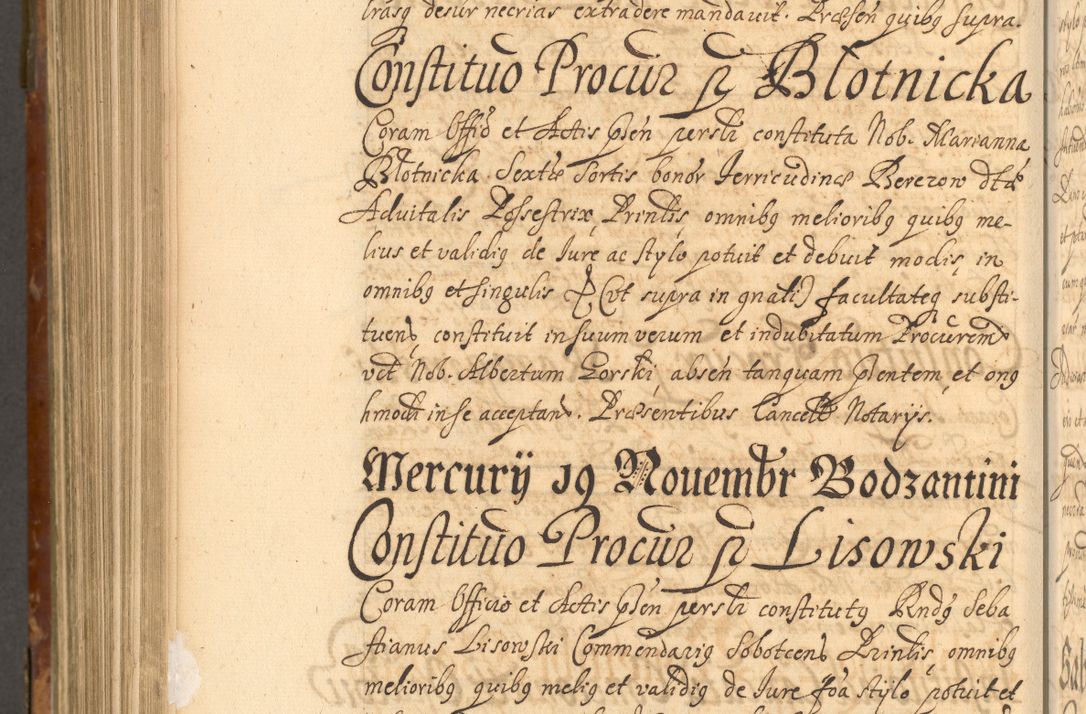 lrasq desur necrias extradere mandavit. Præsen quibq supra.
Constituo Procur p Blotnicka
Coram Offio et Actis pñ persli constituta Nob. Marianna
Blotnicka Sextæ Sortis bonor Terricudinæ Berezow dta
Advitalis Possestrix, Prinlis omnibq melioribq quibq me-
lius et validiq de Iure ac stylo potuit et debuit modis, in
omnibq et singulis (vt supra in gnali) facultateq substi-
tuens, constituit in suum verum et indubitatum Procurem
vct Nob. Albertum Gorski, absen tanquam pntem, et onq
hmodi in se acceptan. Præsentibus Cancell Notarys.
Mercurij 19 Nouembr Bodzantini
Constituo Procur p Lisowski
Coram Officio et Actis pñ persli constitutq Rndq Seba
stianus Lisowski Commendariq Sobotcens Prinlis omnibq
melioribq quibq meliq et validiq de Iure foa stylo potuit et